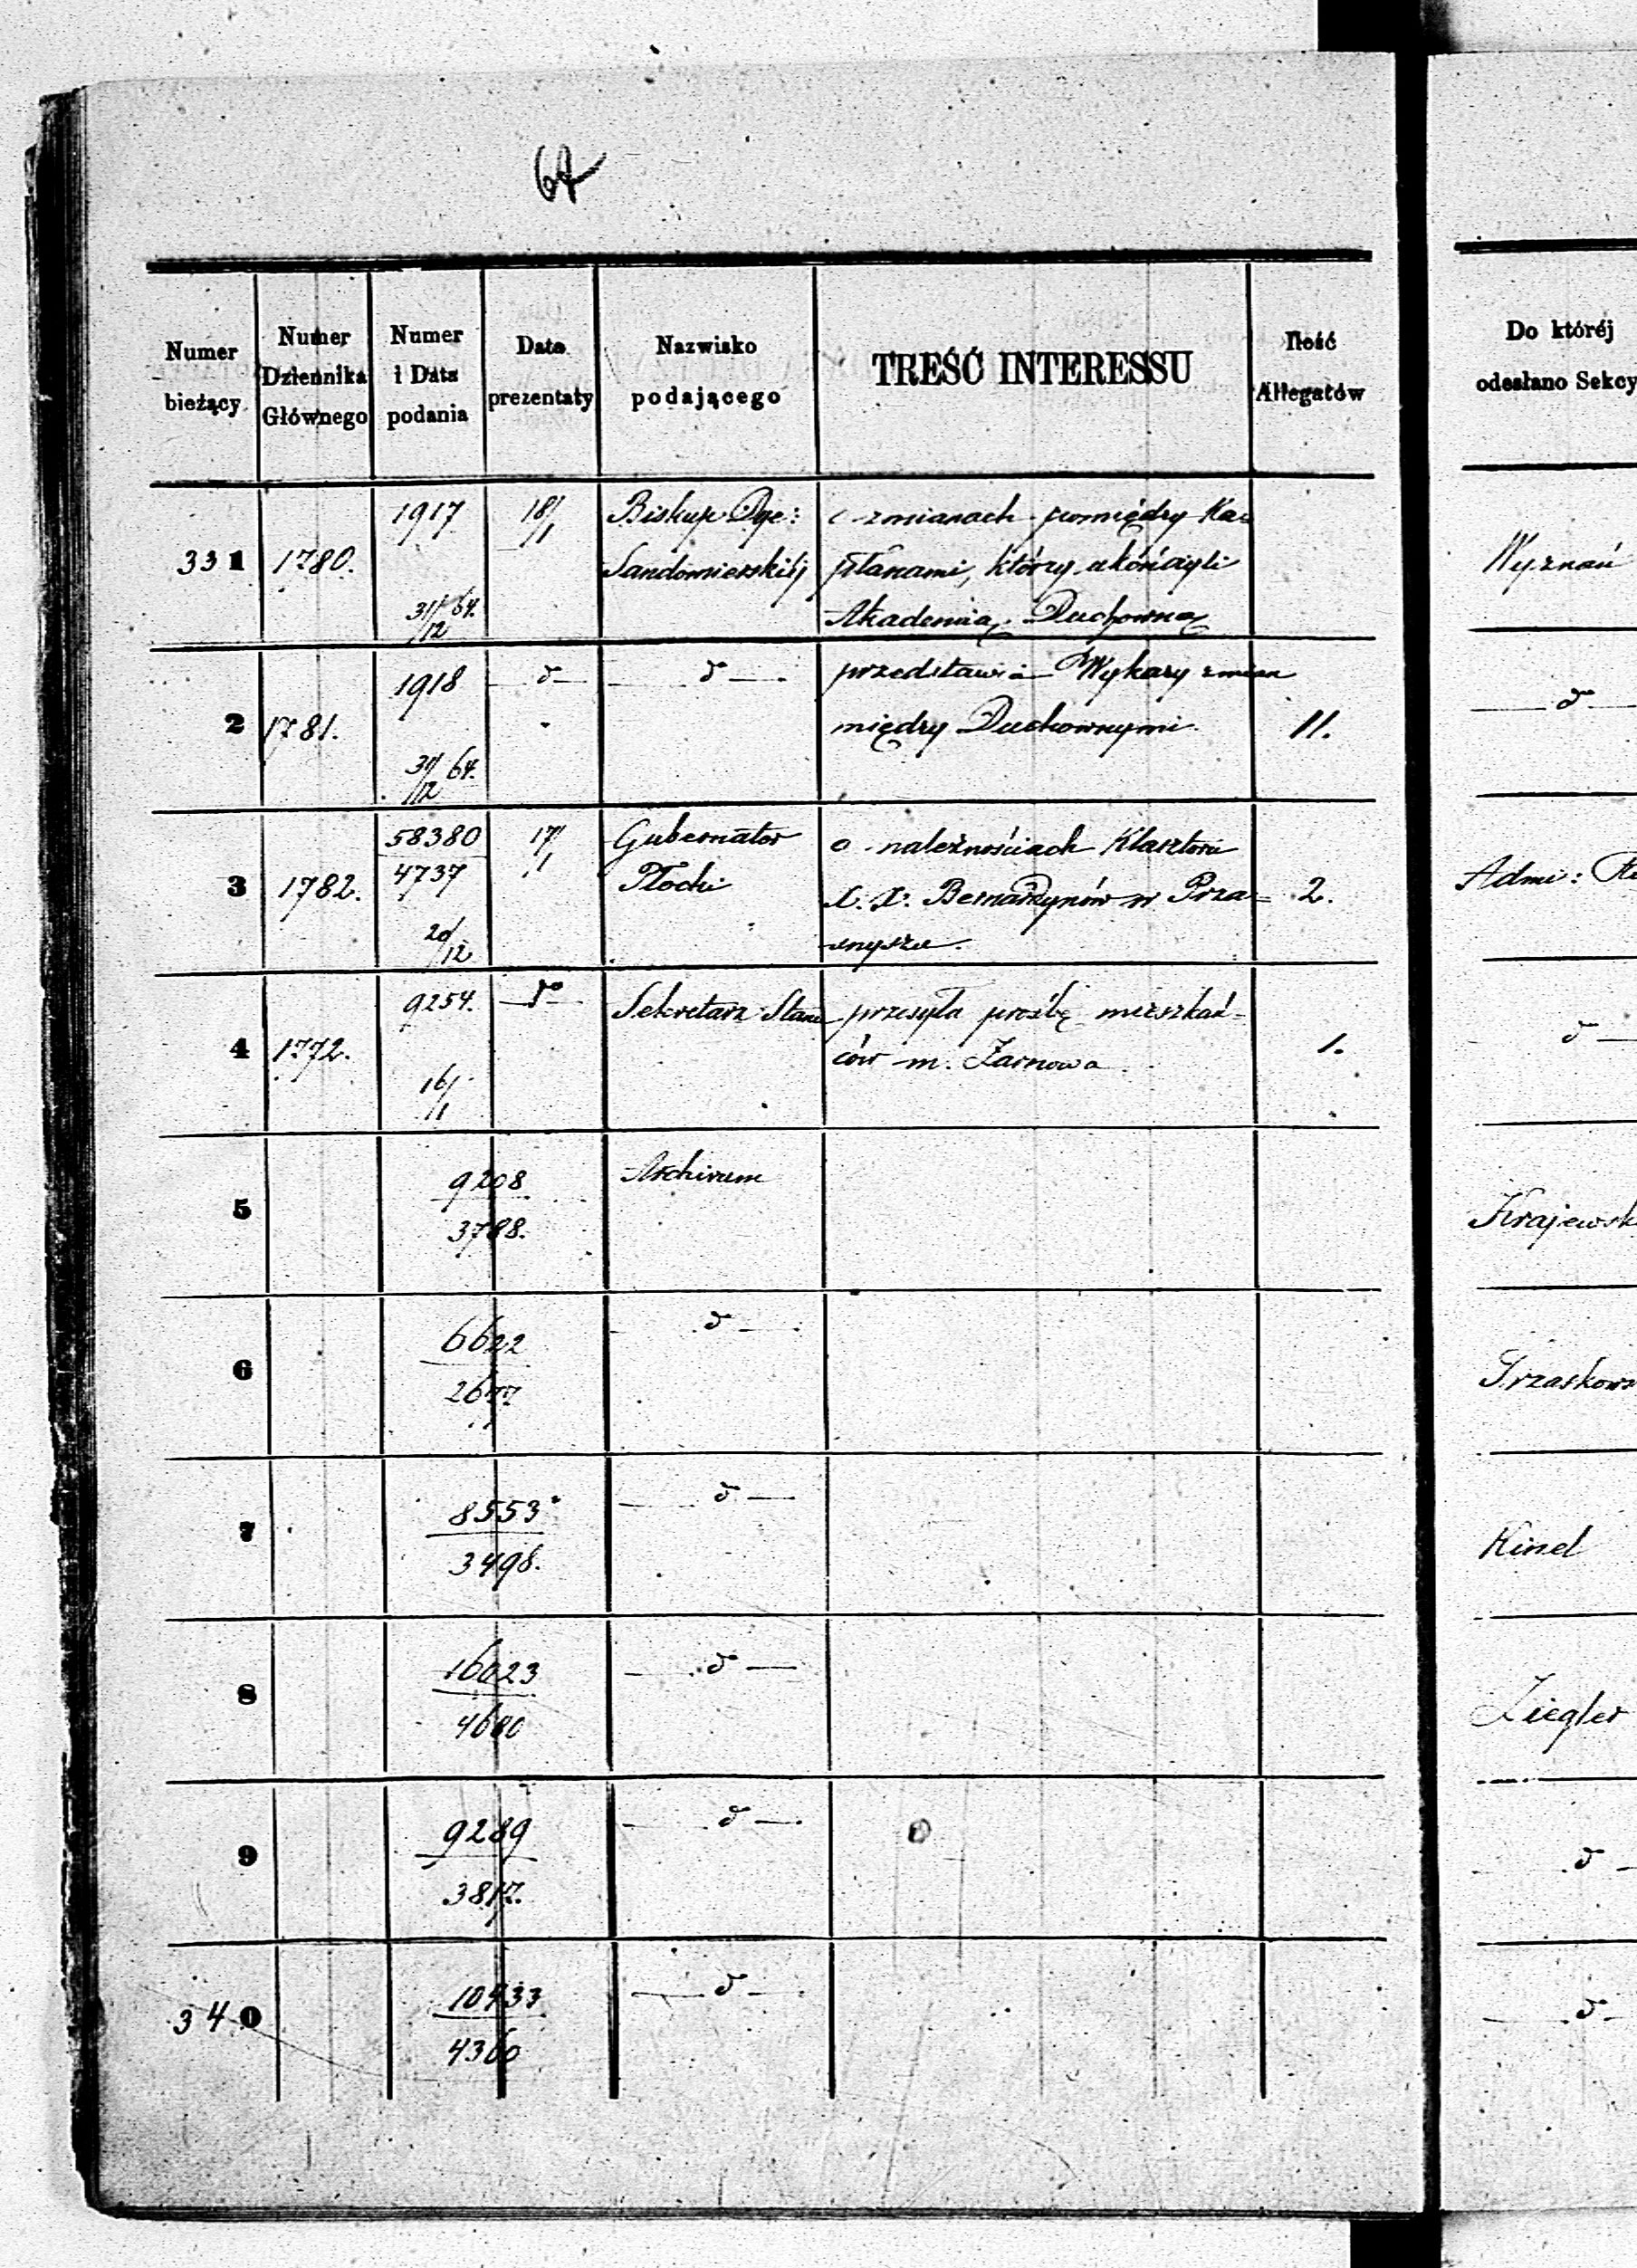 67
Numer bieżący
Numer Dziennika Głównego
Numer i Data podania
Data prezentaty
Nazwisko podającego
TREŚĆ INTERESSU
Ilość Allegatów
Do któréj odesłano Sekcy
331 1780. 1917 31/12 64. 18/1
Biskup Dye:
Sandomierskiéj
o zmianach pomiędzy Ka=
płanami, którzy ukończyli
Akademią Duchowną
Wyznań
2 1781. 1918 31/12 64. — d° — — d° —
przedstawia Wykazy zmian
między Duchownymi.
11.
— d° —
3 1782. 58380 4737 20/12 17/1
Gubernator
Płocki
o należnościach Klasztoru
X. X. Bernardynów w Prza=
snyszu.
2.
Admi:
4 1772. 9254. 16/1 — d° —
Sekretarz Stanu
przesyła prośbę mieszkań=
ców m. Żarnowa
1.
d° —
5 9208 3788. Archivum
Krajewsk
6 6622 2677 — d° —
Trzaskows
7 8553 3498. — d° —
Kinel
8 16023 4680 — d° —
Ziegler
9 9289 3817. — d° —
— d° —
340 10433 4360 — d° —
— d° —